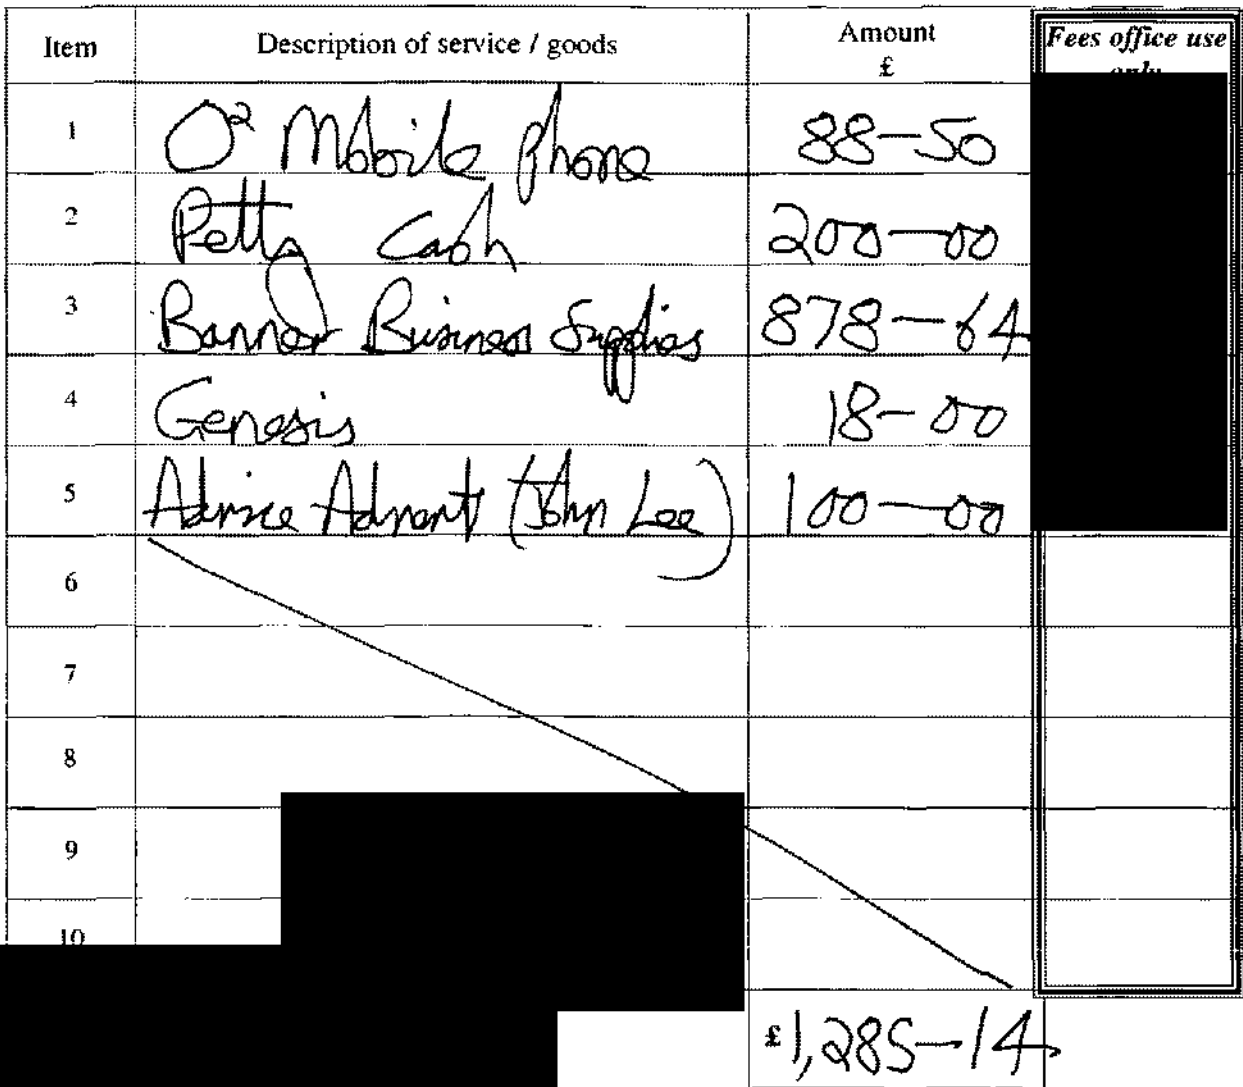 Item Description of service / goods Amount £ Fees office use only
1 O² Mobile phone 88-50
2 Petty Cash 200-00
3 Banner Business Supplies 878-64
4 Genesis 18-00
5 Advice Advent (John Lee) 100-00
6
7
8
9
10
£1,285-14